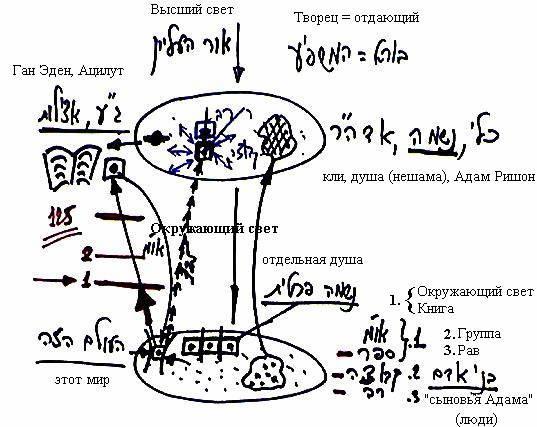 Высший свет
Творец = отдающий
אור העליון
בורא = המשפיע
Ган Эден, Ацилут
ג"ע, אצילות
כלי, נשמה, אדה"ר
кли, душа (нешама), Адам Ришон
רב
קבוצה
125
Окружающий свет
או"מ
2
1
отдельная душа
נשמה פרטית
העולם הזה
этот мир
1. { Окружающий свет
Книга
2. Группа
3. Рав
או"מ
ספר } .1
קבוצה .2
רב .3
בני אדם
"сыновья Адама"
(люди)